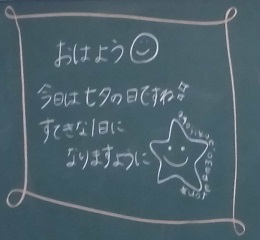 おはよう
今日は七夕の日ですね
すてきな1日に
なりますように